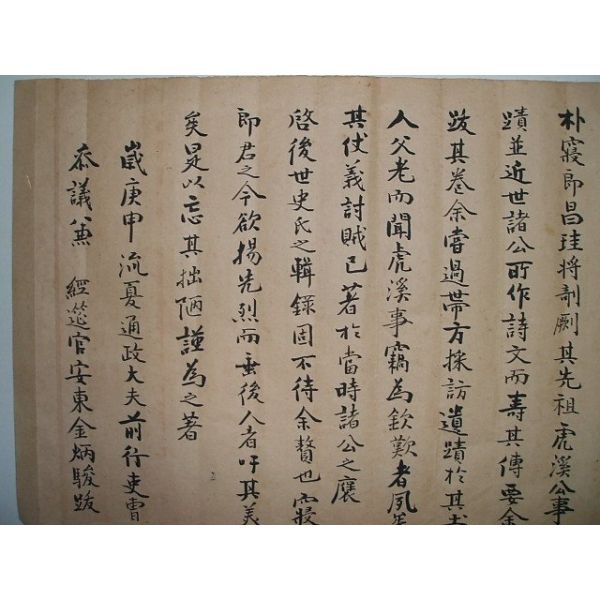 朴寢郎昌珪將剞劂其先祖虎溪公事
蹟並近世諸公所作詩文而壽其傳要余
跋其卷余嘗過帶方採訪遺蹟於其
人父老而聞虎溪事竊為欽歎者夙
其仗義討賊已著於當時諸公之褒
啓後世史氏之輯錄固不待余贅也寢
郎君之今欲揚先烈而垂後人者吁其美
矣是以忘其拙陋謹為之著
歲庚申流夏通政大夫前行吏曹
叅議兼 經筵官安東金炳駿跋